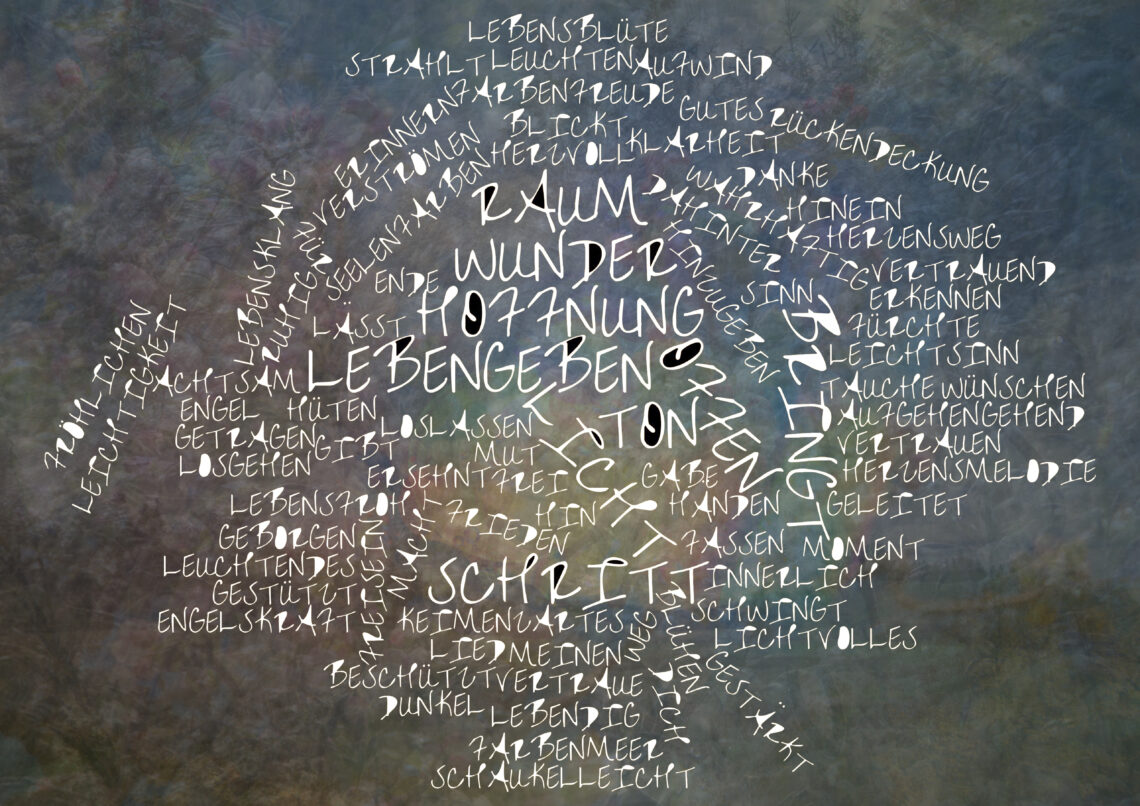 LEBENSBLÜTE
STRAHLT LEUCHTEN AUFWIND
ERINNERN FARBENFREUDE
GUTES RÜCKENDECKUNG
BLICKT
VERSTRÖMEN HERZVOLL KLARHEIT
SEELENFARBEN
WAHRHAFTIG DANKE
RAUM
DAHINTER HINEIN
LEBENSKLANG
RUHIG
HINZUGEBEN HERZENSWEG
WUNDER
ENDE VERTRAUEND
SINN ERKENNEN
HOFFNUNG
LÄSST FÜRCHTE
BRINGT
LEICHTSINN
FRÖHLICHEN
LEICHTIGKEIT
ACHTSAM LEBENGEBEN
TAUCHE WÜNSCHEN
ENGEL HÜTEN
AUFGEHEN GEHEND
LOSLASSEN LICHT TON
GETRAGEN GIBT VERTRAUEN
MUT
LOSGEHEN HERZENSMELODIE
ERSEHNT FREI GABE
LEBENSFROH HÄNDEN GELEITET
MACHT FRIEDEN HIN
GEBORGEN FASSEN MOMENT
FREISEIN
LEUCHTENDES SCHRITT INNERLICH
GESTÜTZT
SCHWINGT
ENGELSKRAFT KEIMEN ZARTES
WEG BLÜHEN LICHTVOLLES
LIED MEINEN
GESTÄRKT
BESCHÜTZT VERTRAUE
DICH
DUNKEL LEBENDIG
FARBENMEER
SCHAUKEL LEICHT